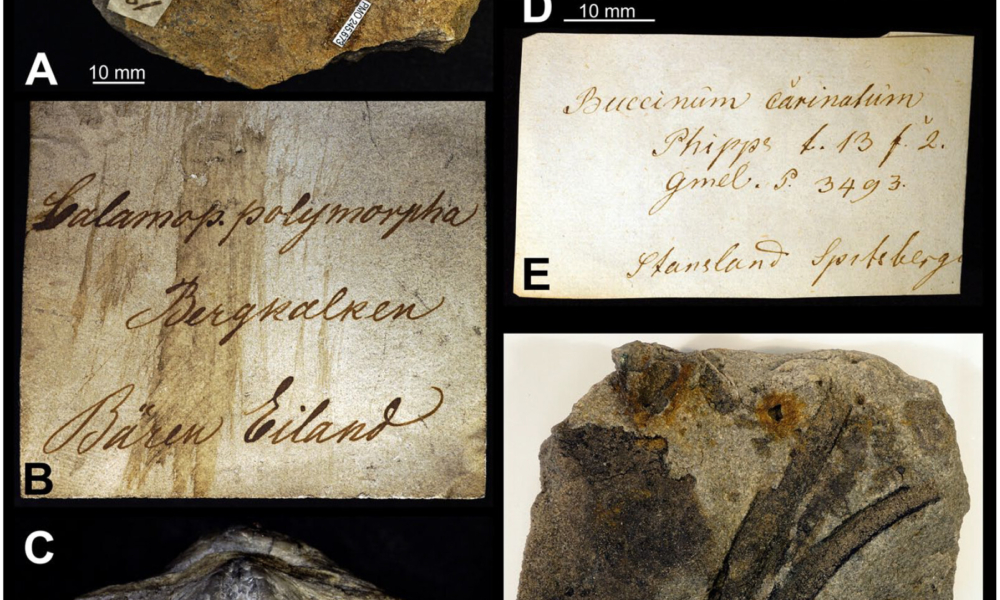 PMO 245.673
A
10 mm
Calamop. polymorpha
Bergkalken
Bären Eiland
B
C
D
10 mm
Buccinum carinatum
Phipps t. 13 f. 2.
Gmel. P. 3493.
Stansland Spitsberge
E